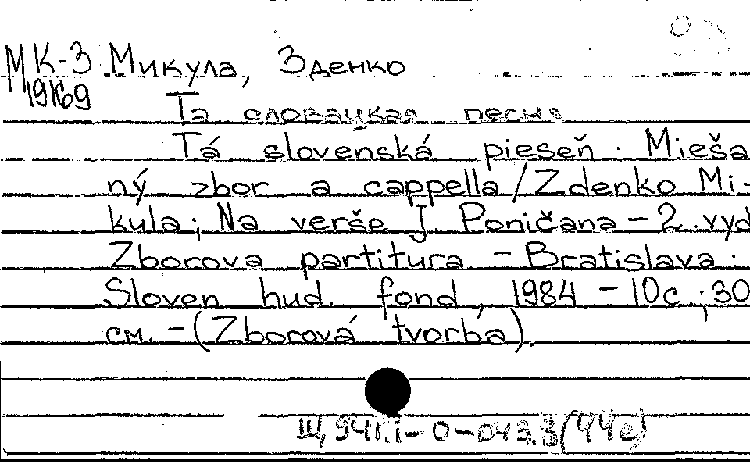 МК-3 Микула, Зденко
19169
Та словацкая песня
Tá slovenská pieseň. Mieša
ný zbor a cappella / Zdenko Mi-
kula; Na verše J Poničana - 2. vyd
Zborova partitura - Bratislava:
Sloven hud. fond, 1984 - 10с; 30
см. - (Zborová tvorba).
Щ 941.1-0-043.3(44е)